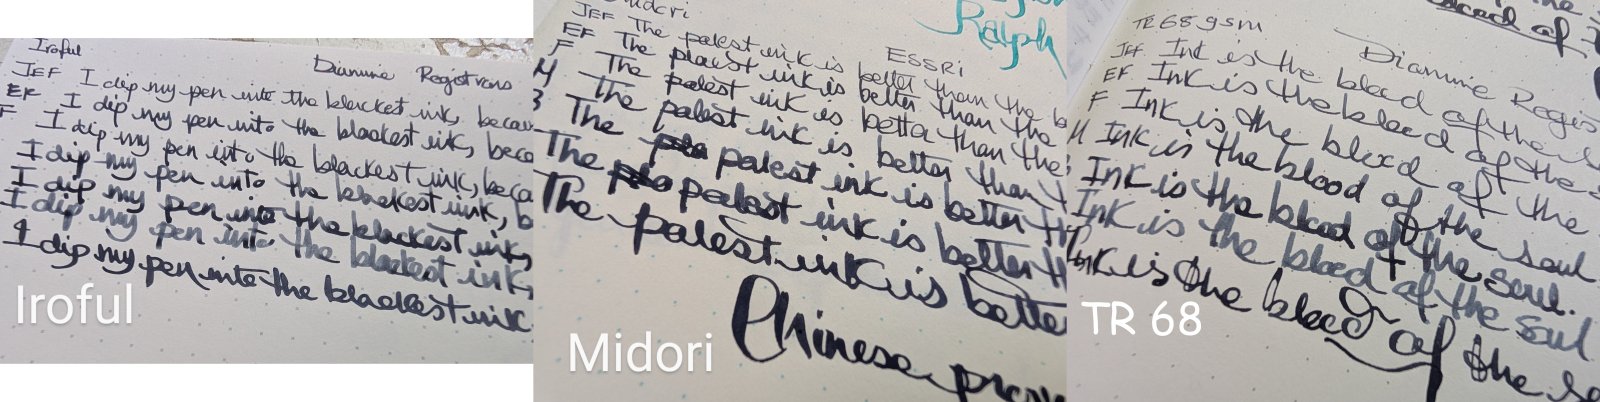 Iroful
Diamine Registrars
JEF I dip my pen into the blackest ink, becau
EF I dip my pen into the blackest ink, beca
F I dip my pen into the blackest ink, beca
I dip my pen into the blackest ink, b
I dip my pen into the blackest ink,
I dip my pen into the blackest ink,
I dip my pen into the blackest ink
Iroful
Midori
ESSRI
Ralph
JEF The palest ink is better than the b
EF The palest ink is better than the
F The palest ink is better than the
M The palest ink is better than
B The palest ink is better th
The palest ink is better th
The palest ink is bette
Chinese prov
Midori
TR 68gsm
Diamine Regis
JEF Ink is the blood of the
EF Ink is the blood of the
F Ink is the blood of the
M Ink is the blood of the soul
Ink is the blood of the soul.
Ink is the blood of the soul
Ink is the blood of the so
TR 68